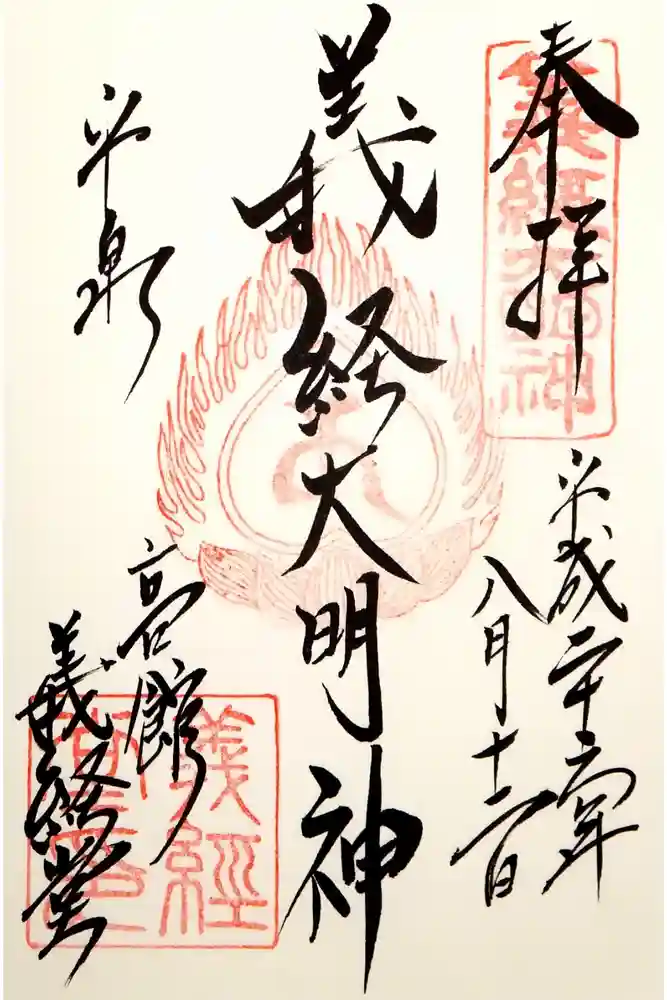 奉拝
義經大明神
平成二十六年
八月十二日
義経大明神
平泉
高館
義経堂
義經